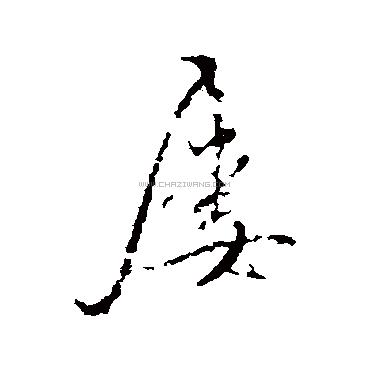 屡
WWW.CHAZIWANG.COM